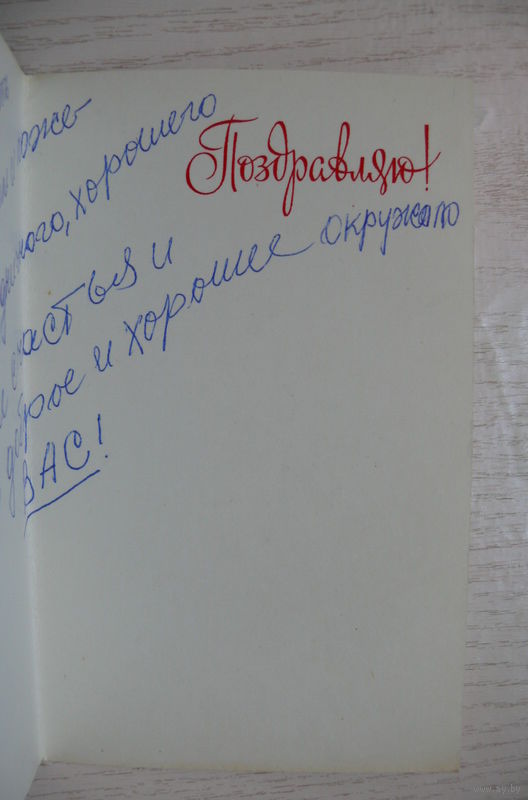 Поздравляю!
тоже
хорошего
счастья и
доброе и хорошее окружало
ВАС!
www.ay.by